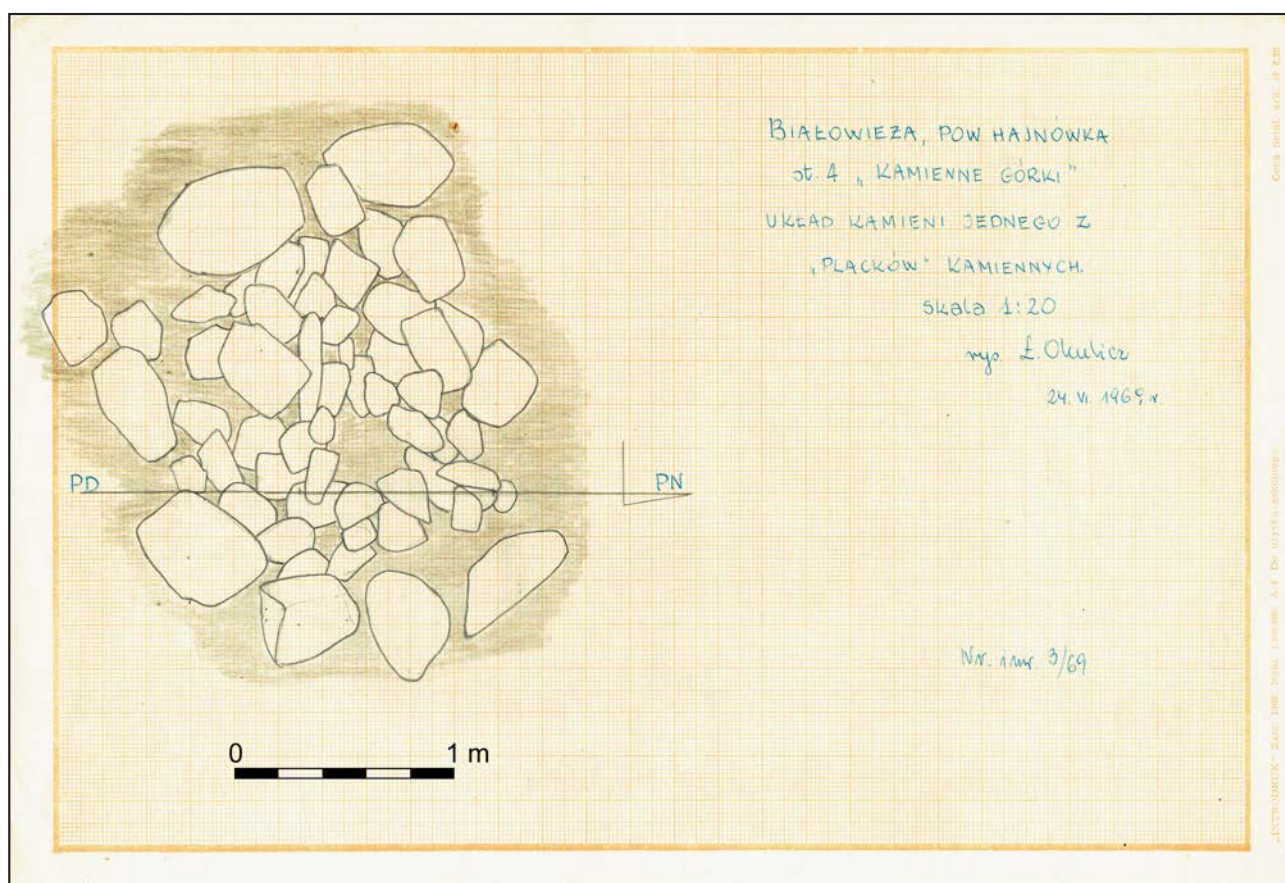 BIAŁOWIEŻA, POW HAJNÓWKA
st. 4 „KAMIENNE GÓRKI"
UKŁAD KAMIENI JEDNEGO Z
„PLACKÓW" KAMIENNYCH.
skala 1:20
rys. Ł. Okulicz
24. VI. 1969, r.
PD
PN
Nr. inw. 3/69
0
1 m